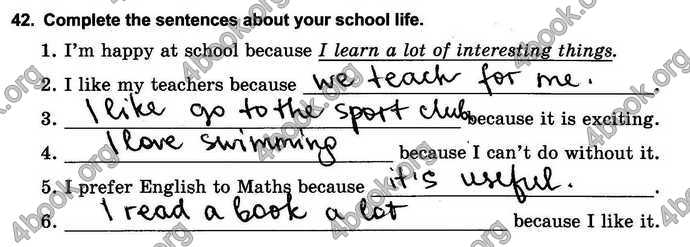 42. Complete the sentences about your school life.
1. I'm happy at school because I learn a lot of interesting things.
2. I like my teachers because we teach for me.
3. I like go to the sport club because it is exciting.
4. I love swimming because I can't do without it.
5. I prefer English to Maths because it's useful.
6. I read a book a lot because I like it.
4book.org
4book.org
4book.org
4book.org
4book.org
4book.org